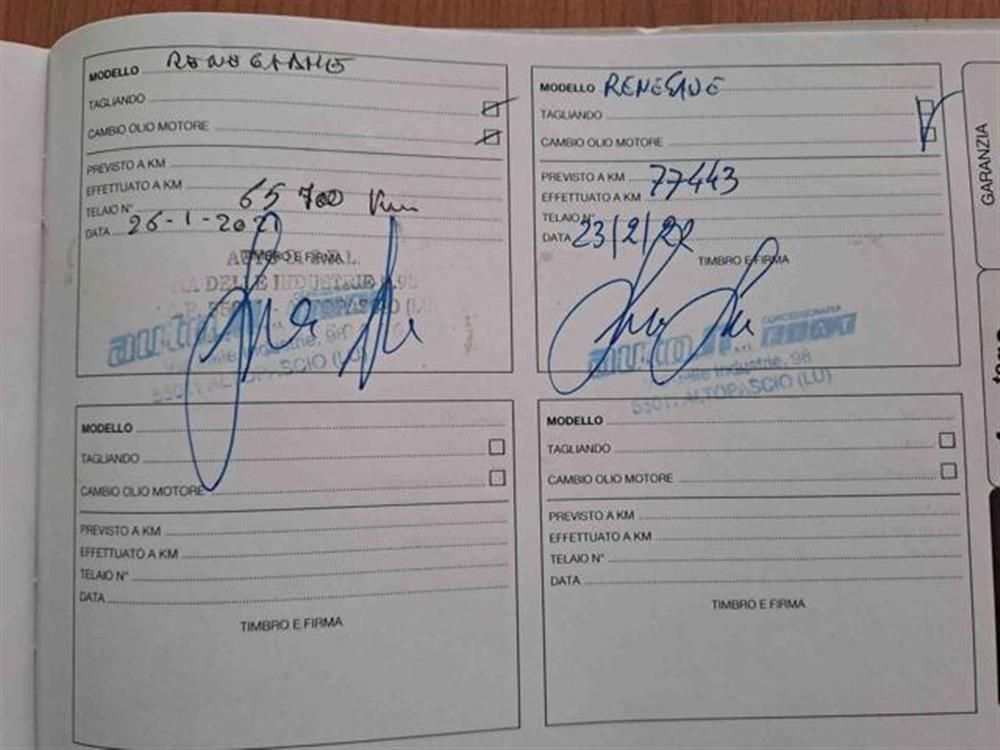 MODELLO RENEGADE
TAGLIANDO
CAMBIO OLIO MOTORE
PREVISTO A KM
EFFETTUATO A KM
65 700 Km
TELAIO N°
DATA 26-1-2021
TIMBRO E FIRMA
DELLE INDUSTRIE
ALTOPASCIO (LU)
Industrie, 98
55011 ALTOPASCIO (LU)
MODELLO RENEGADE
TAGLIANDO
CAMBIO OLIO MOTORE
PREVISTO A KM 77443
EFFETTUATO A KM
TELAIO N°
DATA 23/2/22
TIMBRO E FIRMA
CONCESSIONARIA
FIAT
Industrie, 98
55011 ALTOPASCIO (LU)
MODELLO
TAGLIANDO
CAMBIO OLIO MOTORE
PREVISTO A KM
EFFETTUATO A KM
TELAIO N°
DATA
TIMBRO E FIRMA
MODELLO
TAGLIANDO
CAMBIO OLIO MOTORE
PREVISTO A KM
EFFETTUATO A KM
TELAIO N°
DATA
TIMBRO E FIRMA
GARANZIA